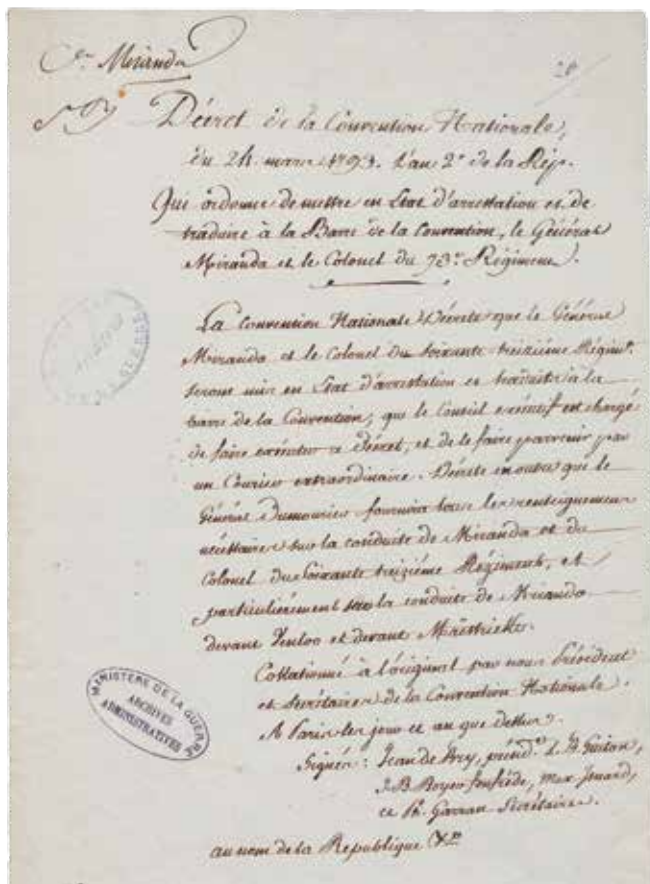 Gr. Miranda
20
Décret de la Convention Nationale,
du 24. mars 1793. l'an 2e de la Rép.
Qui ordonne de mettre en Etat d'arrestation et de
traduire à la Barre de la Convention, le Général
Miranda et le Colonel du 73e Régiment.
La Convention Nationale Décrète que le Général
Miranda et le Colonel du soixante treizième Régimt.
seront mis en Etat d'arrestation et traduits à la
barre de la Convention, que le Conseil exécutif est chargé
de faire exécuter ce Décret, et de le faire parvenir par
un Courier extraordinaire. Décrète en outre que le
Général Dumourier fournira tous les renseignemens
nécessaires sur la conduite de Miranda et du
Colonel du soixante treizième Régiment, et
particulièrement sur la conduite de Miranda
devant Venloo et devant Mastrickt.
Collationné à l'original par nous Président
et Secrétaires de la Convention Nationale.
A Paris les jour et an que dessus.
Signés: Jean de Bry, présidt. L. B. Guiton,
J. B. Boyer fonfrède, max Isnard,
et Ph. Garran Secrétaires.
au nom de la République &a
MINISTERE DE LA GUERRE
ARCHIVES
ADMINISTRATIVES